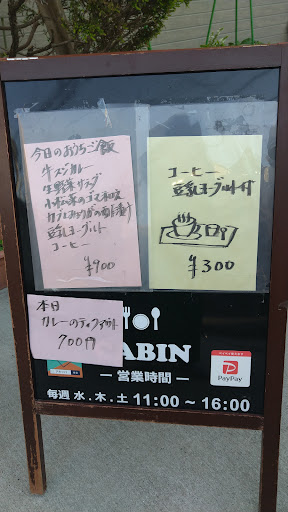 今日のおうちご飯
牛スジカレー
生野菜サラダ
小松菜のゴマ和え
豆乳ヨーグルト
コーヒー
¥900
コーヒー
豆乳ヨーグルト付
¥300
本日
カレーのテイクアウト
700円
ABIN
― 営業時間 ―
毎週 水.木.土 11:00～16:00
PayPay